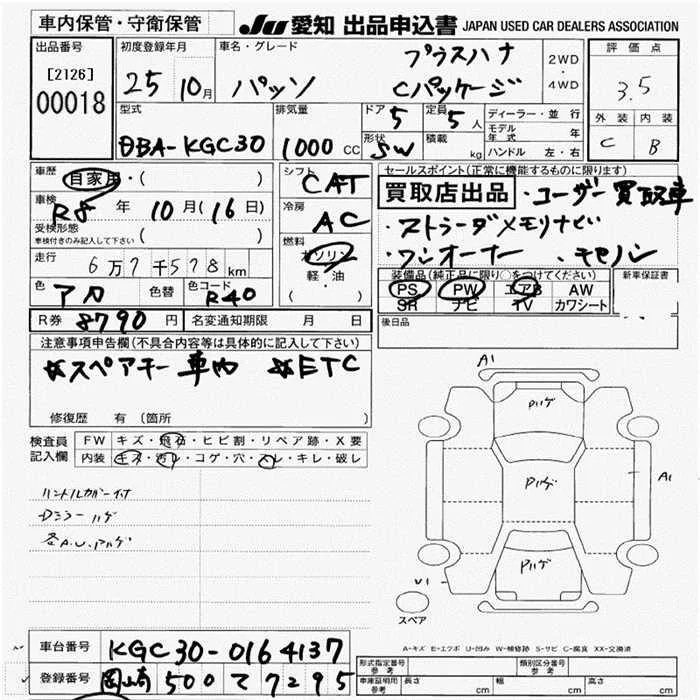 車内保管・守衛保管
JU 愛知 出品申込書 JAPAN USED CAR DEALERS ASSOCIATION
出品番号 [2126] 00018
初度登録年月 25 10月
車名・グレード パッソ プラスハナ Cパッケージ
2WD・4WD
評価点 3.5
外装 C 内装 B
型式 DBA-KGC30
排気量 1000 CC
ドア 5 定員 5人
形状 SW 積載 kg
ディーラー・並行
モデル年式 年
ハンドル 左・右
車歴 自家用・( )
車検 R8年 10月(16日)
受検形態 車検付きのみ記入して下さい ( )
走行 6万7千578km
色 アカ 色替 色コード R40
シフト CAT
冷房 AC
燃料 ガソリン 軽・油 ( )
セールスポイント(正常に機能するものに限ります)
買取店出品 ・ユーザー買取車
・ストラーダメモリナビ
・ワンオーナー ・キセノン
装備品(純正品に限り○をつけてください)
PS PW エアB AW
SR ナビ TV カワシート
新車保証書
後日品
R券 8790円 名変通知期限 月 日
注意事項申告欄(不具合内容等は具体的に記入して下さい)
☆スペアキー車内 ☆ETC
修復歴 有 (箇所 )
検査員記入欄
FW キズ・飛石・ヒビ割・リペア跡・X要
内装 キズ・汚レ・コゲ・穴・スレ・キレ・破レ
ハンドルカバー付
Dミラーハゲ
各A.U.Pハゲ
A1
Pハゲ
Pハゲ
A1
Pハゲ
V1
スペア
A-キズ E-エクボ U-凹み W-補修跡 S-サビ C-腐食 XX-交換済
車台番号 KGC30-0164137
登録番号 岡崎 500 て 7295
形式指定番号 類別区分番号
車庫証明用参考 長さ cm 幅 cm 高さ cm